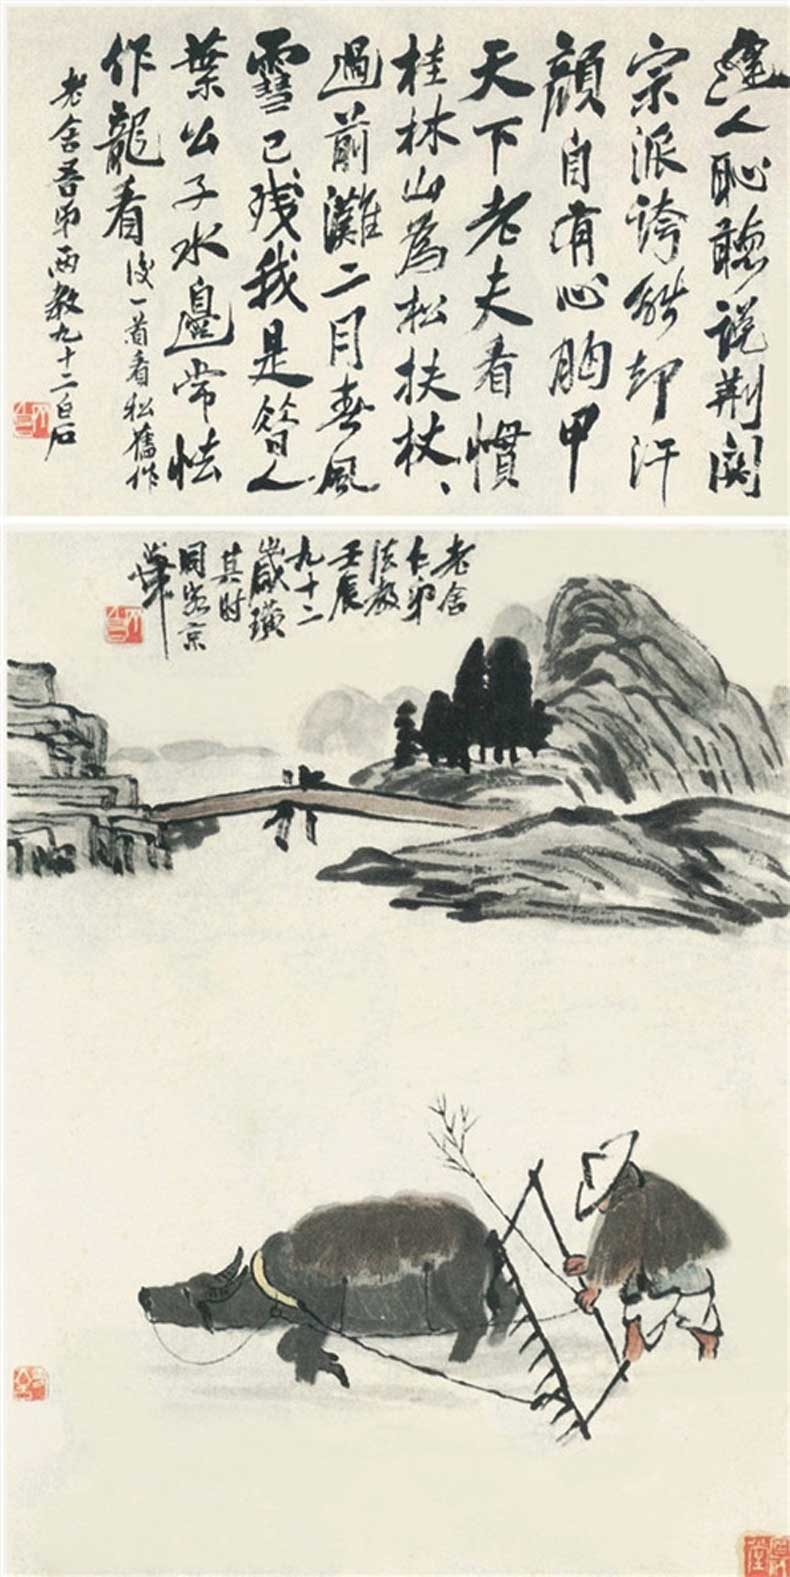 逢人耻聽說荆關
宗派誇能却汗
顏自有心胸甲
天下老夫看慣
桂林山為松扶杖
過前灘二月春風
雪已殘我是昔人
葉公子水邊常怯
作龍看
後一首看松舊作
老舍吾弟兩教九十二白石
老舍
仁弟
法教
壬辰
九十二
歲璜
其時
同客京
華